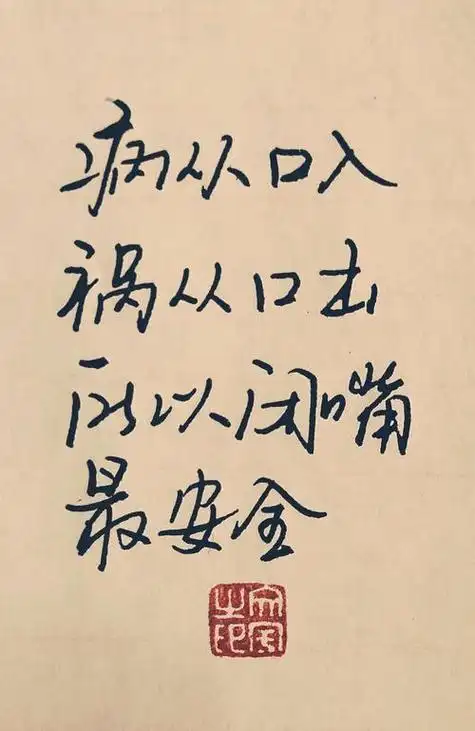 病从口入
祸从口出
所以闭嘴
最安全